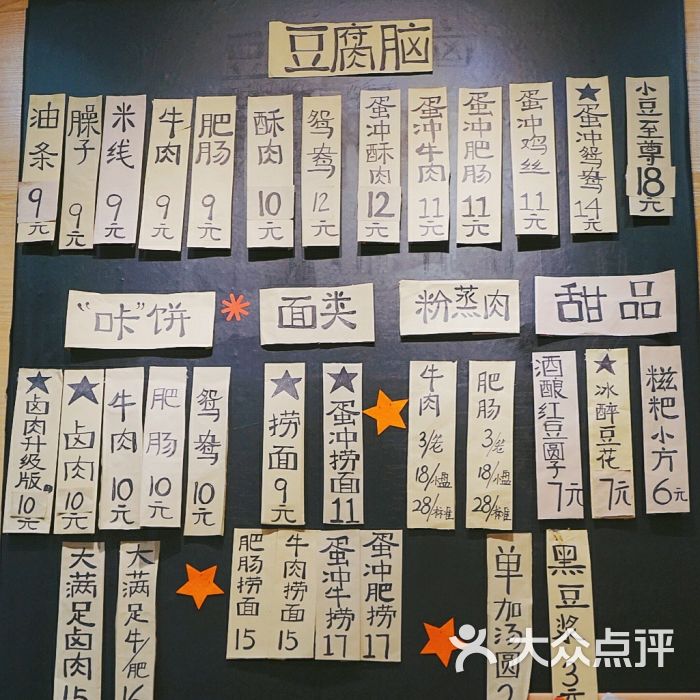 豆腐脑
油条 9元
臊子 9元
米线 9元
牛肉 9元
肥肠 9元
酥肉 10元
鸳鸯 12元
蛋冲酥肉 12元
蛋冲牛肉 11元
蛋冲肥肠 11元
蛋冲鸡丝 11元
★蛋冲鸳鸯 14元
小豆至尊 18元
"咔"饼
面类
粉蒸肉
甜品
★卤肉升级版 10元
★卤肉 10元
牛肉 10元
肥肠 10元
鸳鸯 10元
★捞面 9元
★蛋冲捞面 11
牛肉 3/笼 18/小盘 28/标准
肥肠 3/笼 18/小盘 28/标准
酒酿红豆圆子 7元
★冰醉豆花 7元
糍粑小方 6元
大满足卤肉 15
大满足牛/肥 16
肥肠捞面 15
牛肉捞面 15
蛋冲牛捞 17
蛋冲肥捞 17
单加汤圆 2
黑豆浆 3元
大众点评